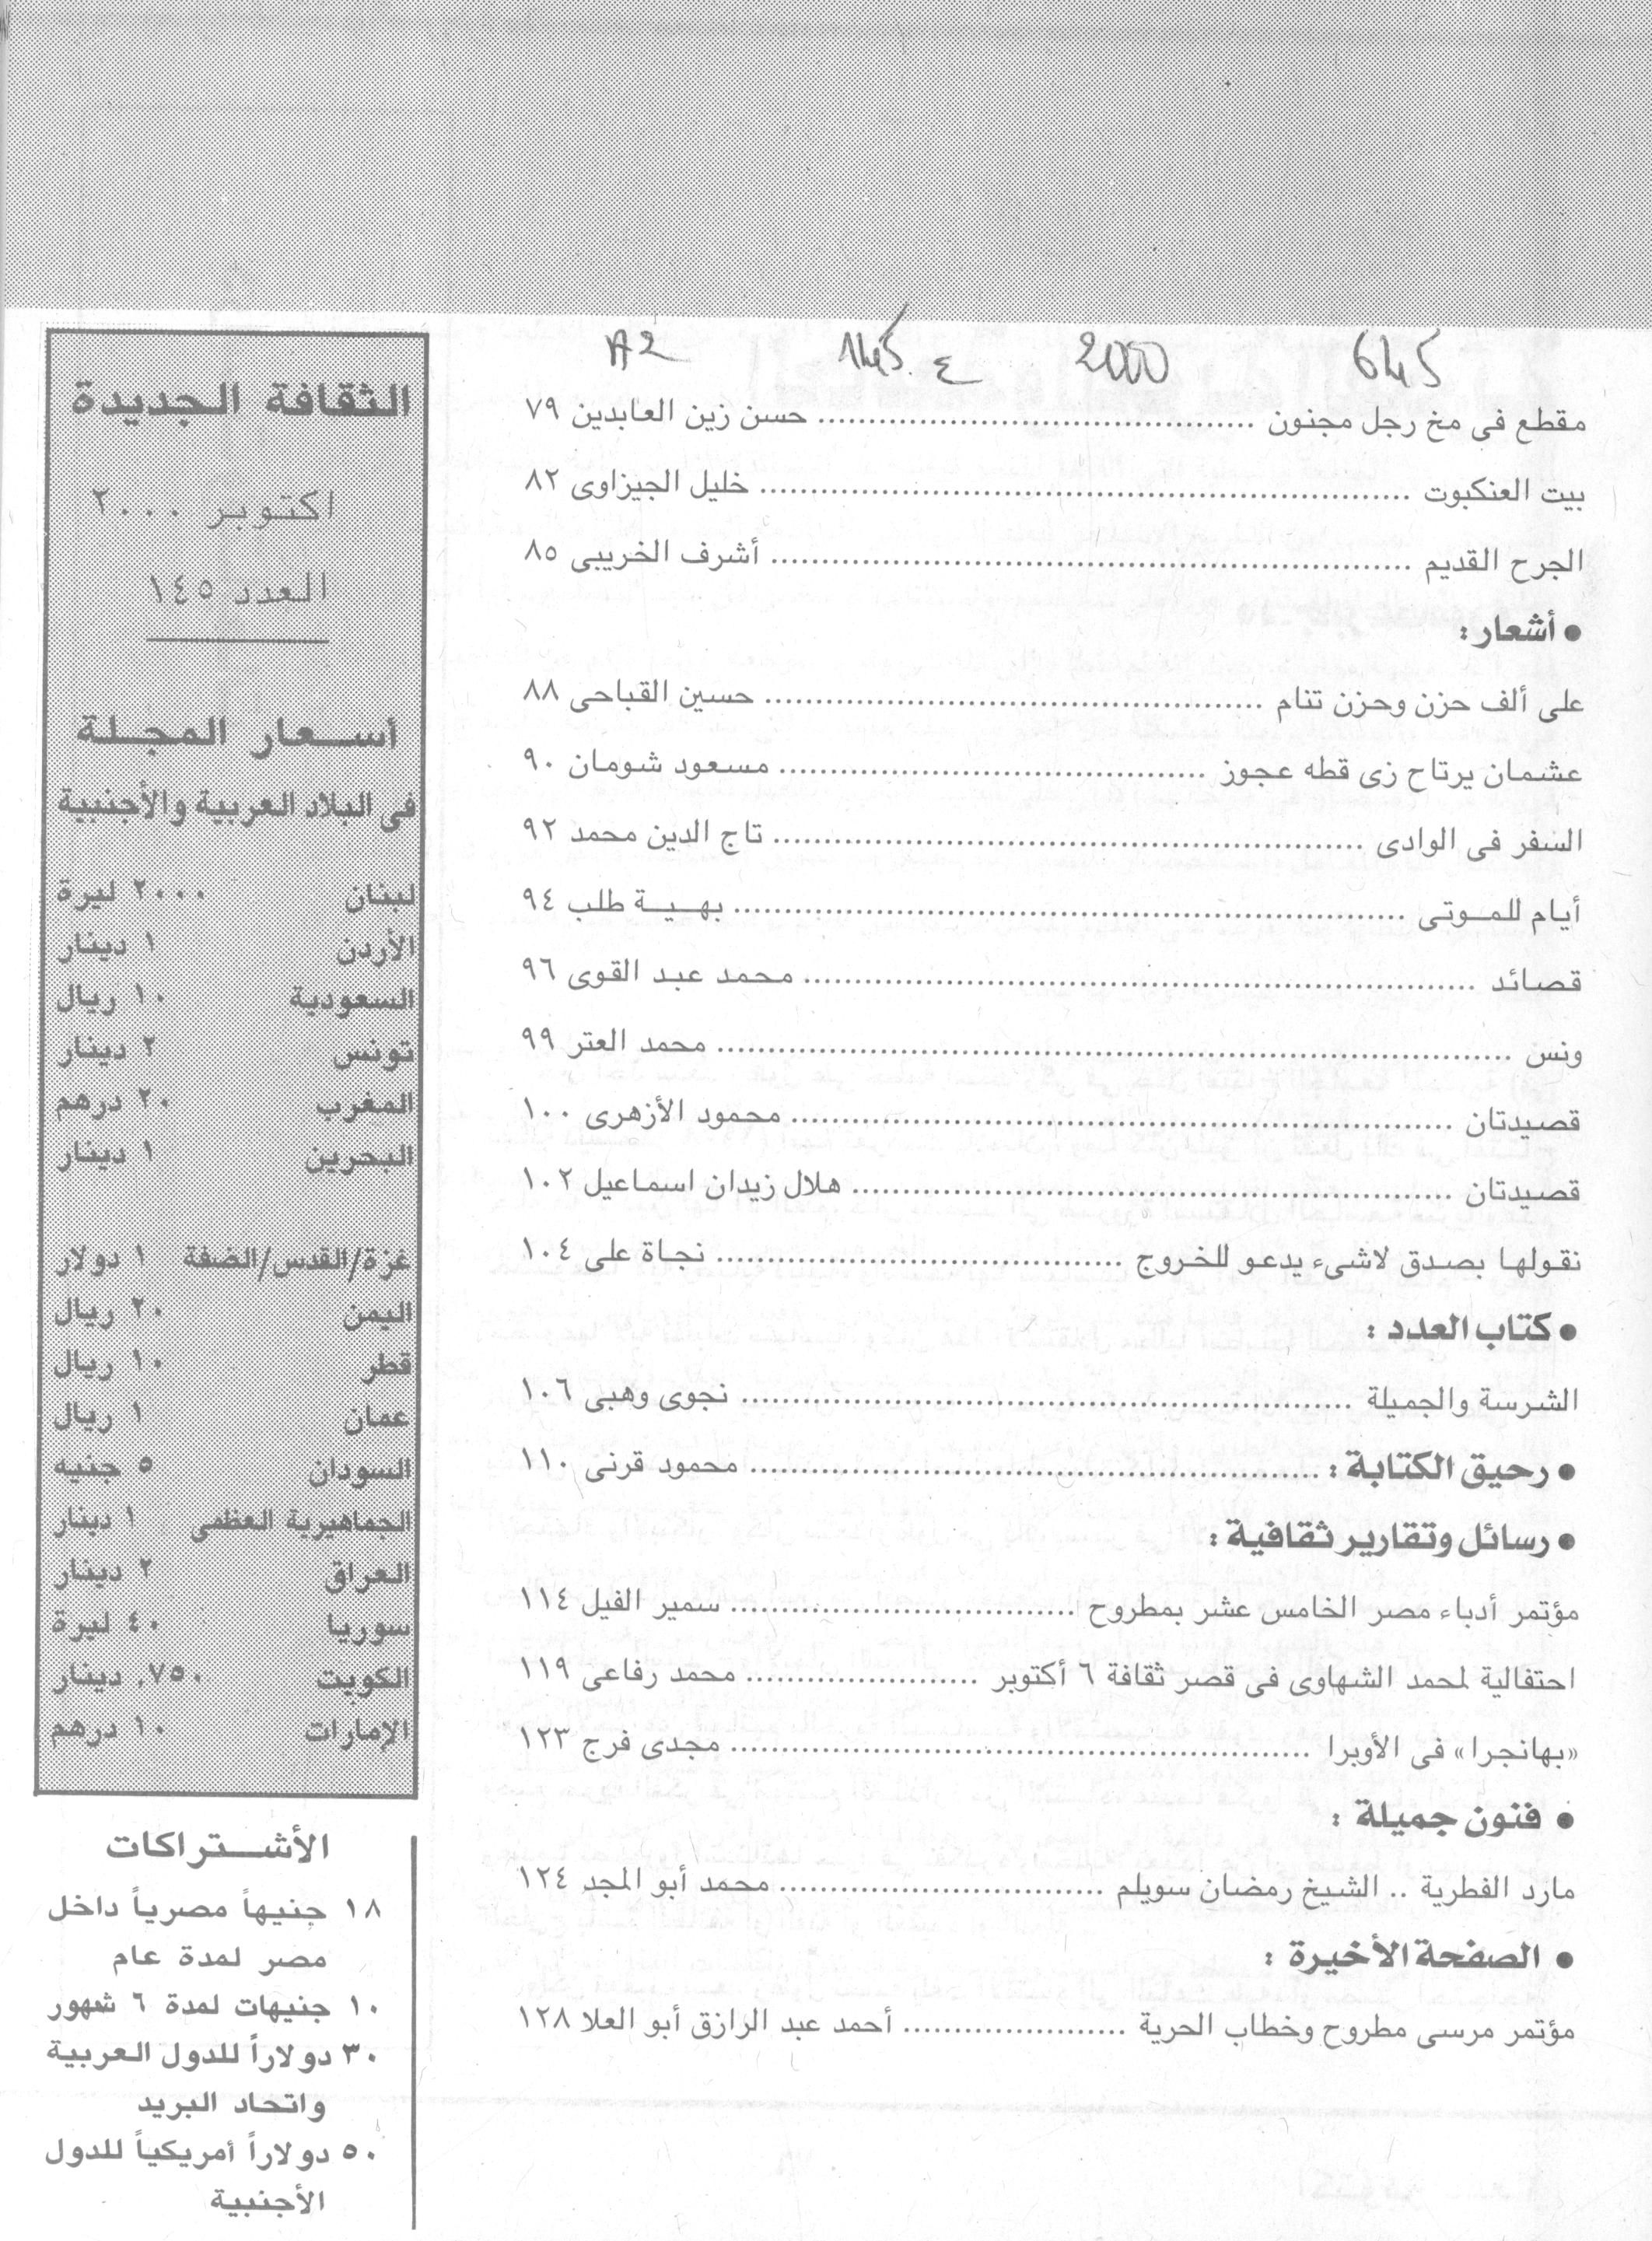 645 2000 ع 145 A2
مقطع فى مخ رجل مجنون ........ حسن زين العابدين ٧٩
بيت العنكبوت ........ خليل الجيزاوى ٨٢
الجرح القديم ........ أشرف الخريبى ٨٥
● أشعار :
على ألف حزن وحزن تنام ........ حسين القباحى ٨٨
عشمان يرتاح زى قطه عجوز ........ مسعود شومان ٩٠
السفر فى الوادى ........ تاج الدين محمد ٩٢
أيام للموتى ........ بهية طلب ٩٤
قصائد ........ محمد عبد القوى ٩٦
ونس ........ محمد العتر ٩٩
قصيدتان ........ محمود الأزهرى ١٠٠
قصيدتان ........ هلال زيدان اسماعيل ١٠٢
نقولها بصدق لاشىء يدعو للخروج ........ نجاة على ١٠٤
● كتاب العدد :
الشرسة والجميلة ........ نجوى وهبى ١٠٦
● رحيق الكتابة : ........ محمود قرنى ١١٠
● رسائل وتقارير ثقافية :
مؤتمر أدباء مصر الخامس عشر بمطروح ........ سمير الفيل ١١٤
احتفالية لمحمد الشهاوى فى قصر ثقافة ٦ أكتوبر ........ محمد رفاعى ١١٩
«بهانجرا» فى الأوبرا ........ مجدى فرج ١٢٣
● فنون جميلة :
مارد الفطرية .. الشيخ رمضان سويلم ........ محمد أبو المجد ١٢٤
● الصفحة الأخيرة :
مؤتمر مرسى مطروح وخطاب الحرية ........ أحمد عبد الرازق أبو العلا ١٢٨
الثقافة الجديدة
اكتوبر ٢٠٠٠
العدد ١٤٥
أسعار المجلة
فى البلاد العربية والأجنبية
لبنان ٢٠٠٠ ليرة
الأردن ١ دينار
السعودية ١٠ ريال
تونس ٢ دينار
المغرب ٢٠ درهم
البحرين ١ دينار
غزة/القدس/الضفة ١ دولار
اليمن ٢٠ ريال
قطر ١٠ ريال
عمان ١ ريال
السودان ٥ جنيه
الجماهيرية العظمى ١ دينار
العراق ٢ دينار
سوريا ٤٠ ليرة
الكويت ٧٥٠, دينار
الإمارات ١٠ درهم
الأشتراكات
١٨ جنيهاً مصرياً داخل
مصر لمدة عام
١٠ جنيهات لمدة ٦ شهور
٣٠ دولاراً للدول العربية
واتحاد البريد
٥٠ دولاراً أمريكياً للدول
الأجنبية